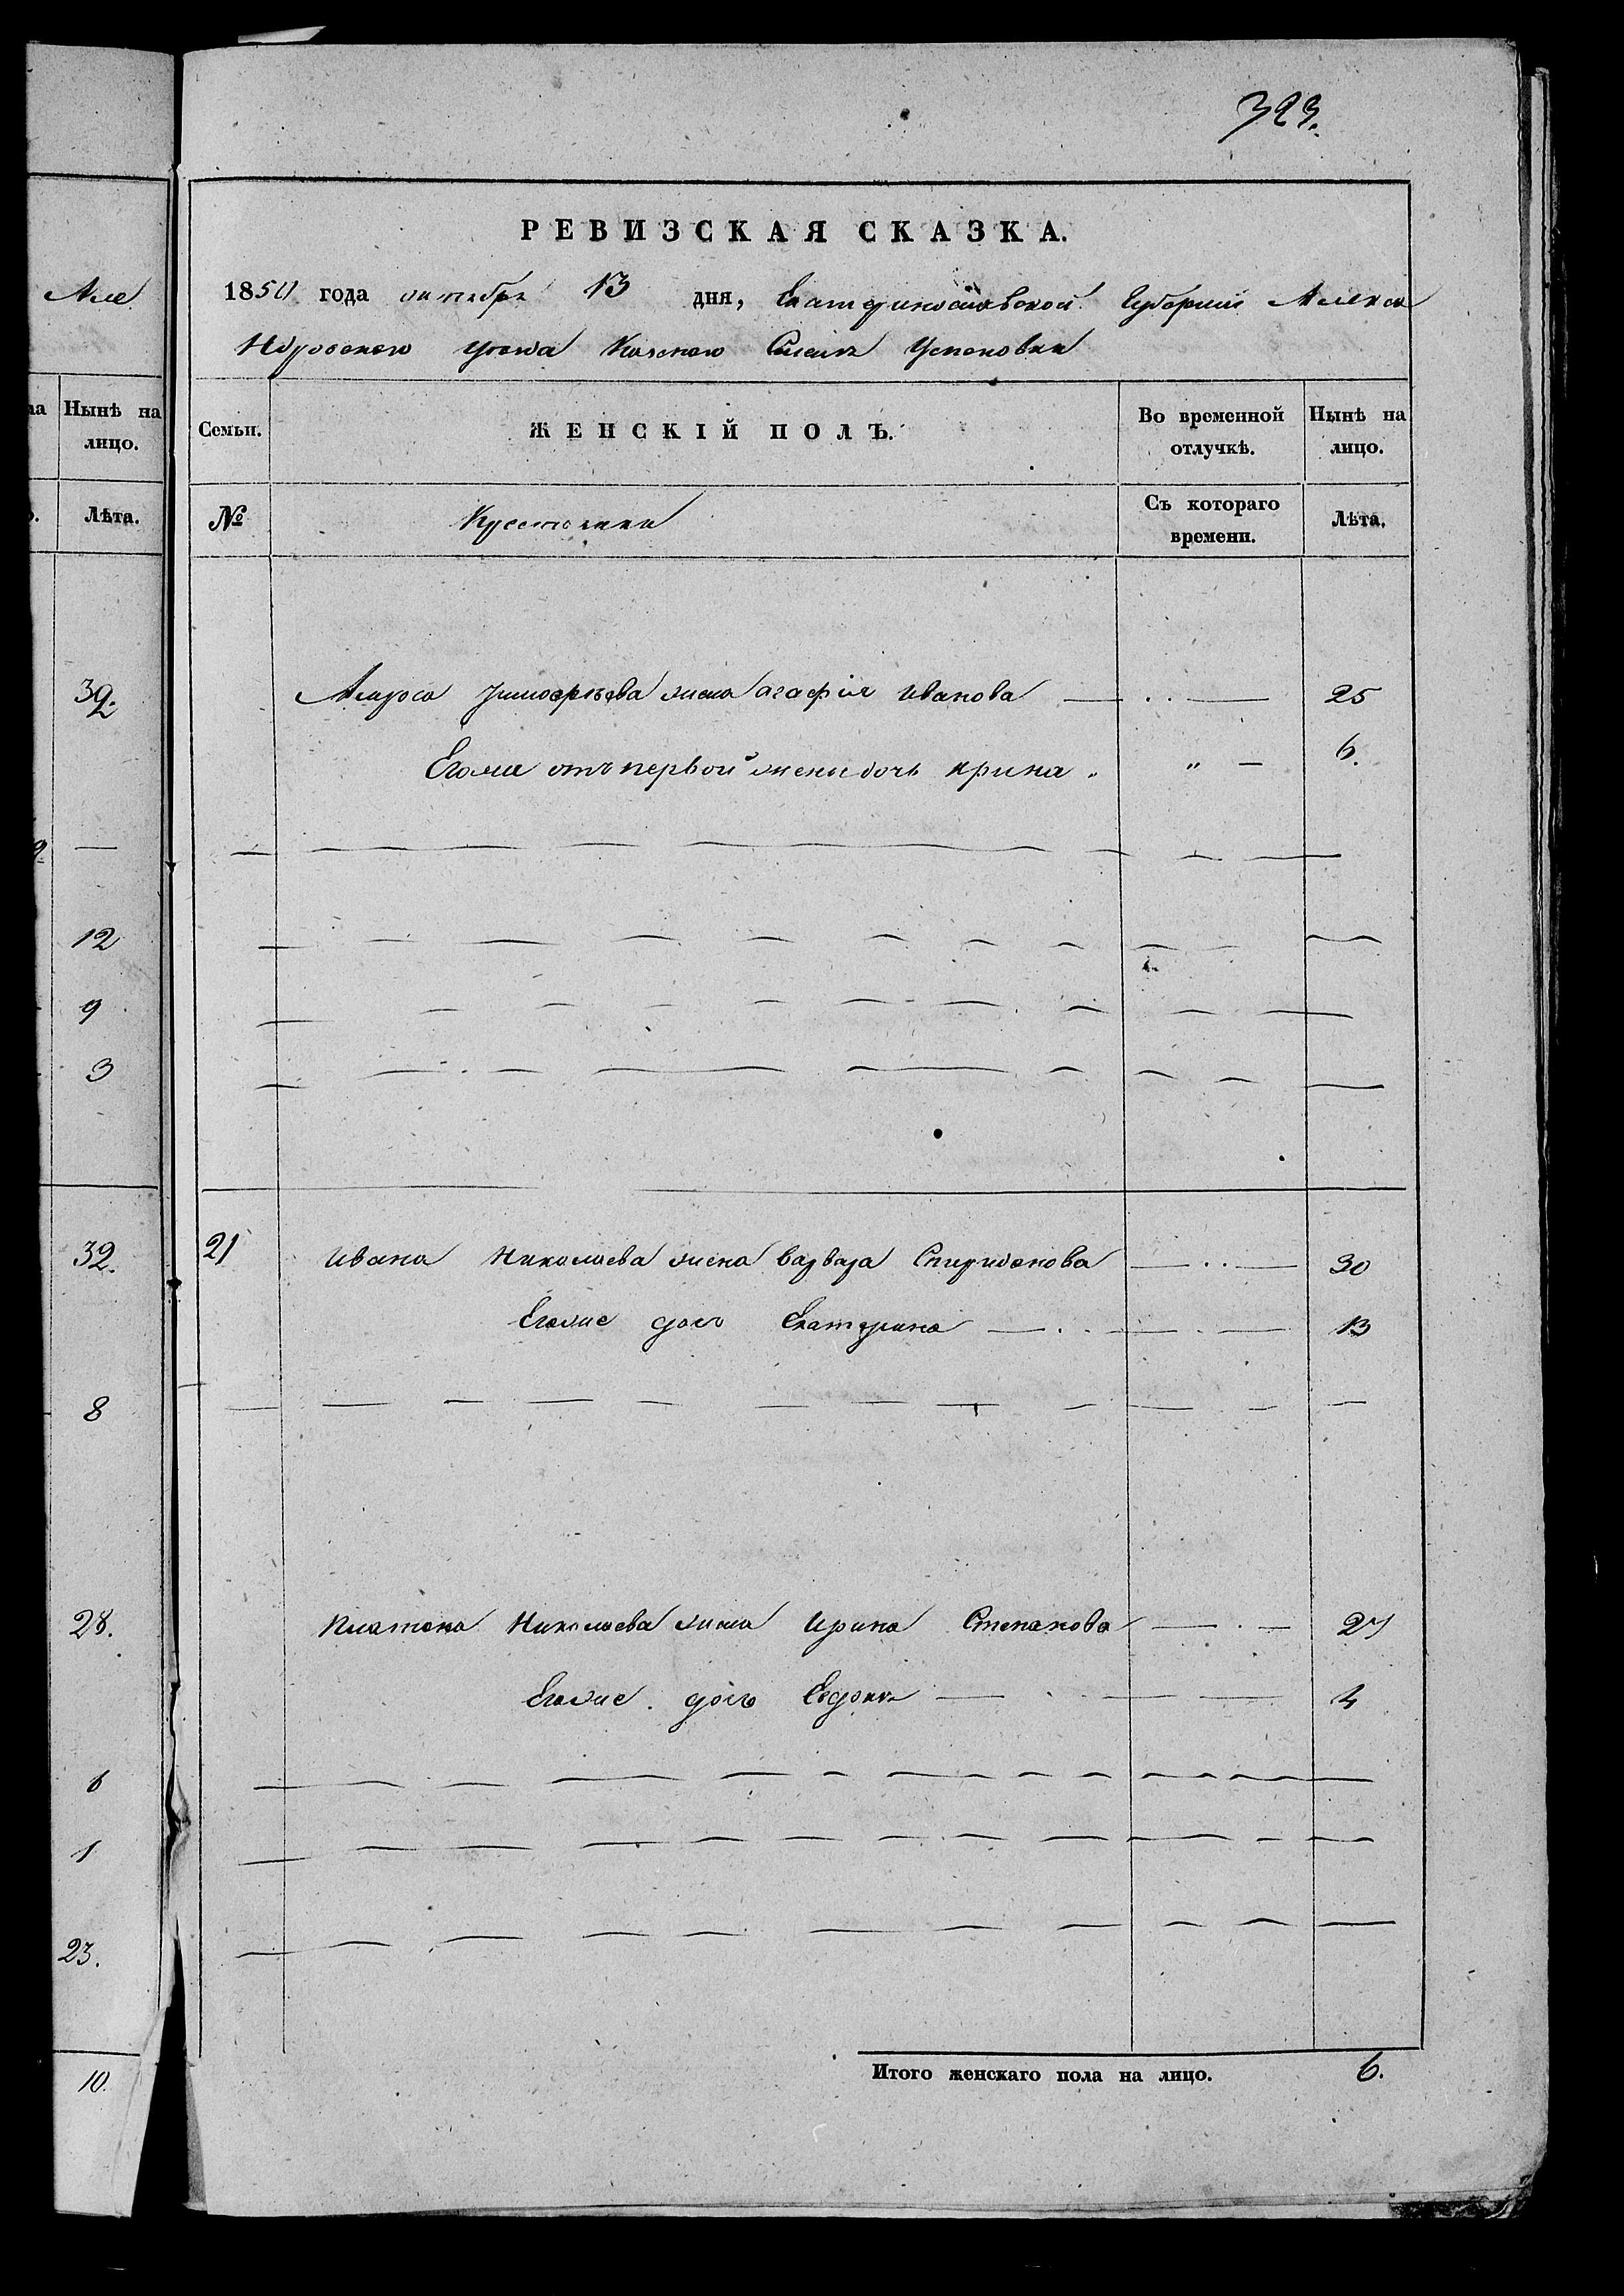 323.
РЕВИЗСКАЯ СКАЗКА.
1850 года октября 13 дня, Екатеринославской Губернии Алекса
Ндровского уезда Казенного Успеновки
Але
Нынѣ на лицо.
Лѣта.
39.
12
9
3
32.
8
28.
6
1
23.
10.
Семьи.
ЖЕНСКІЙ ПОЛЪ.
Во временной отлучкѣ.
Нынѣ на лицо.
№
Съ котораго времени.
Лѣта.
Тимофеева жена агафія Иванова 25
Егоже отъ первой жены дочь Ирина 6.
21 Ивана Николаева жена варвара Спиридонова 30
Егоже дочь Екатерина 13
Платона Николаева жена Ирина Степанова 27
Егоже дочь 4
Итого женскаго пола на лицо. 6.